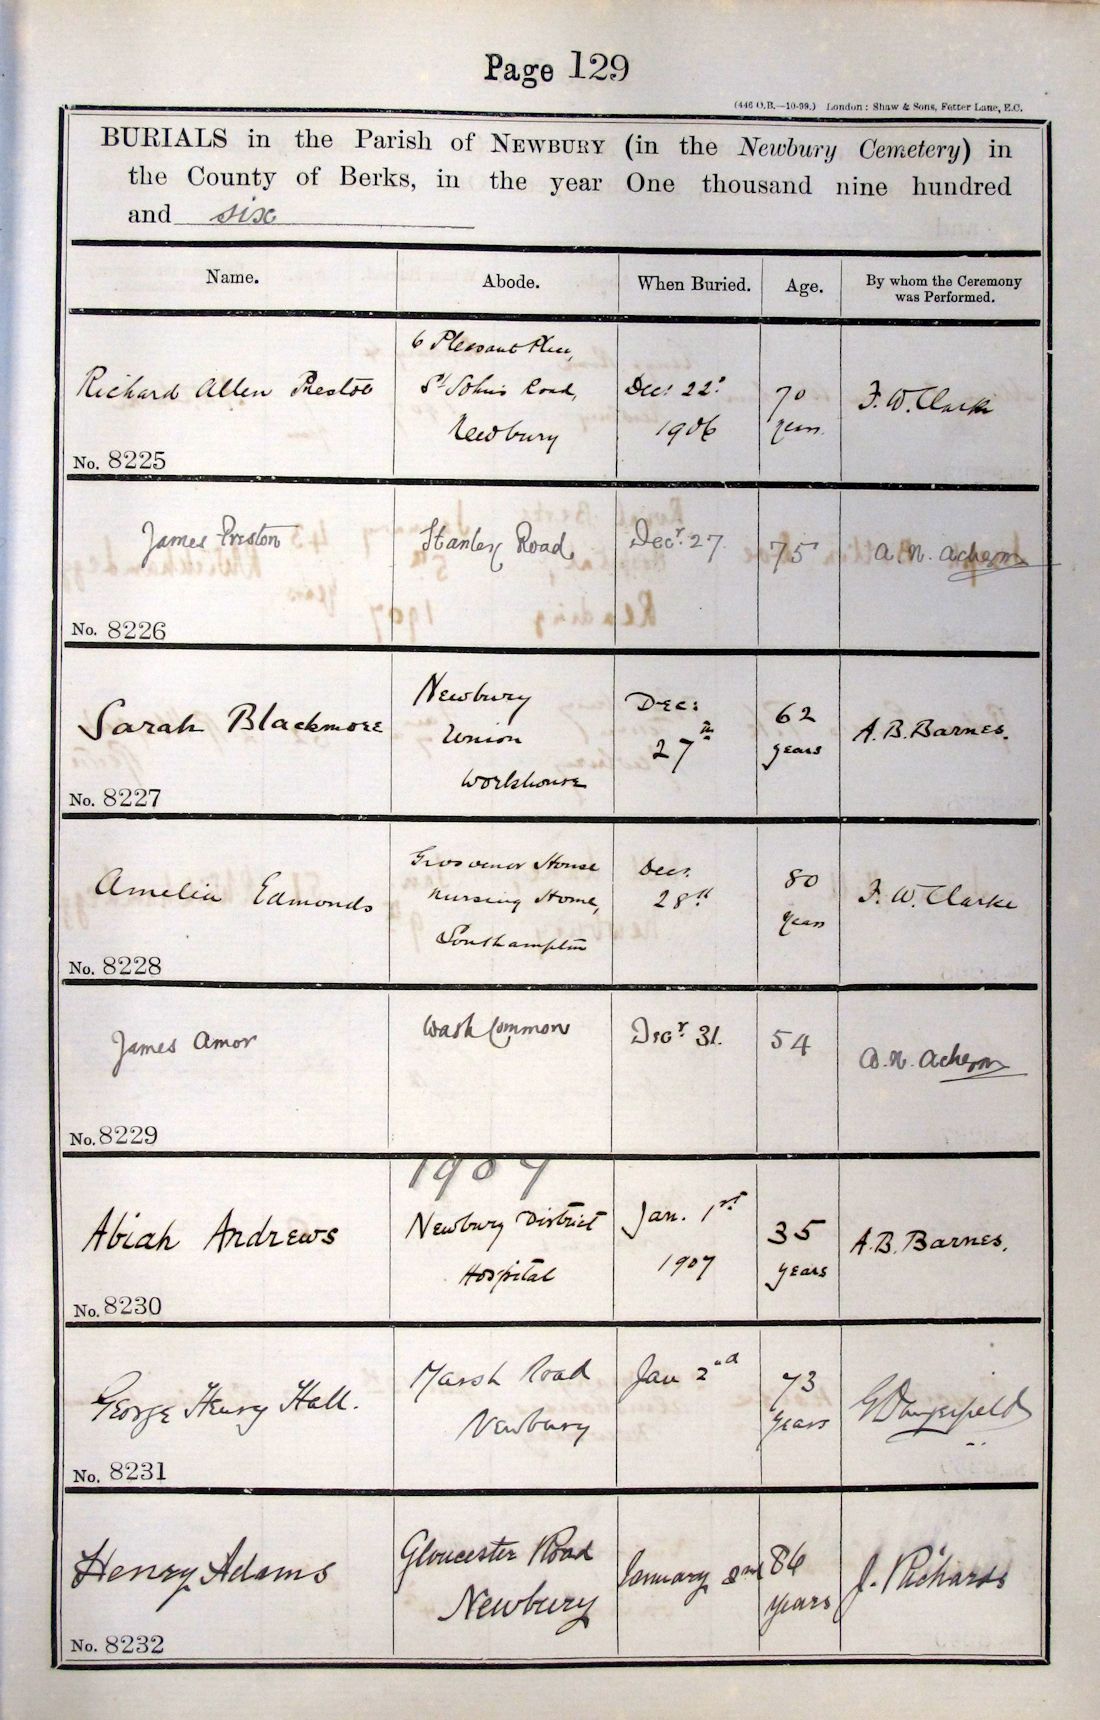 Page 129
(446 O.B.—10-99.) London: Shaw & Sons, Fetter Lane, E.C.
BURIALS in the Parish of NEWBURY (in the Newbury Cemetery) in
the County of Berks, in the year One thousand nine hundred
and six
Name.
Abode.
When Buried.
Age.
By whom the Ceremony
was Performed.
Richard Allen Preston
6 Pleasant Place,
St John's Road,
Newbury
Dec: 22:
1906
70
years
F. W. Clarke
No. 8225
James Preston
Stanley Road
Decr. 27.
75
No. 8226
Sarah Blackmore
Newbury
Union
Workhouse
Dec:
27th
62
years
A. B. Barnes.
No. 8227
Amelia Edmonds
Grosvenor House
Nursing Home,
Southampton
Dec.
28th
80
years
F. W. Clarke
No. 8228
James Amor
Wash Common
Decr 31.
54
No. 8229
1907
Abiah Andrews
Newbury District
Hospital
Jan. 1st
1907
35
years
A. B. Barnes.
No. 8230
George Henry Hall.
Marsh Road
Newbury
Jan 2nd
73
years
No. 8231
Henry Adams
Gloucester Road
Newbury
January
86
years
J. Richards
No. 8232